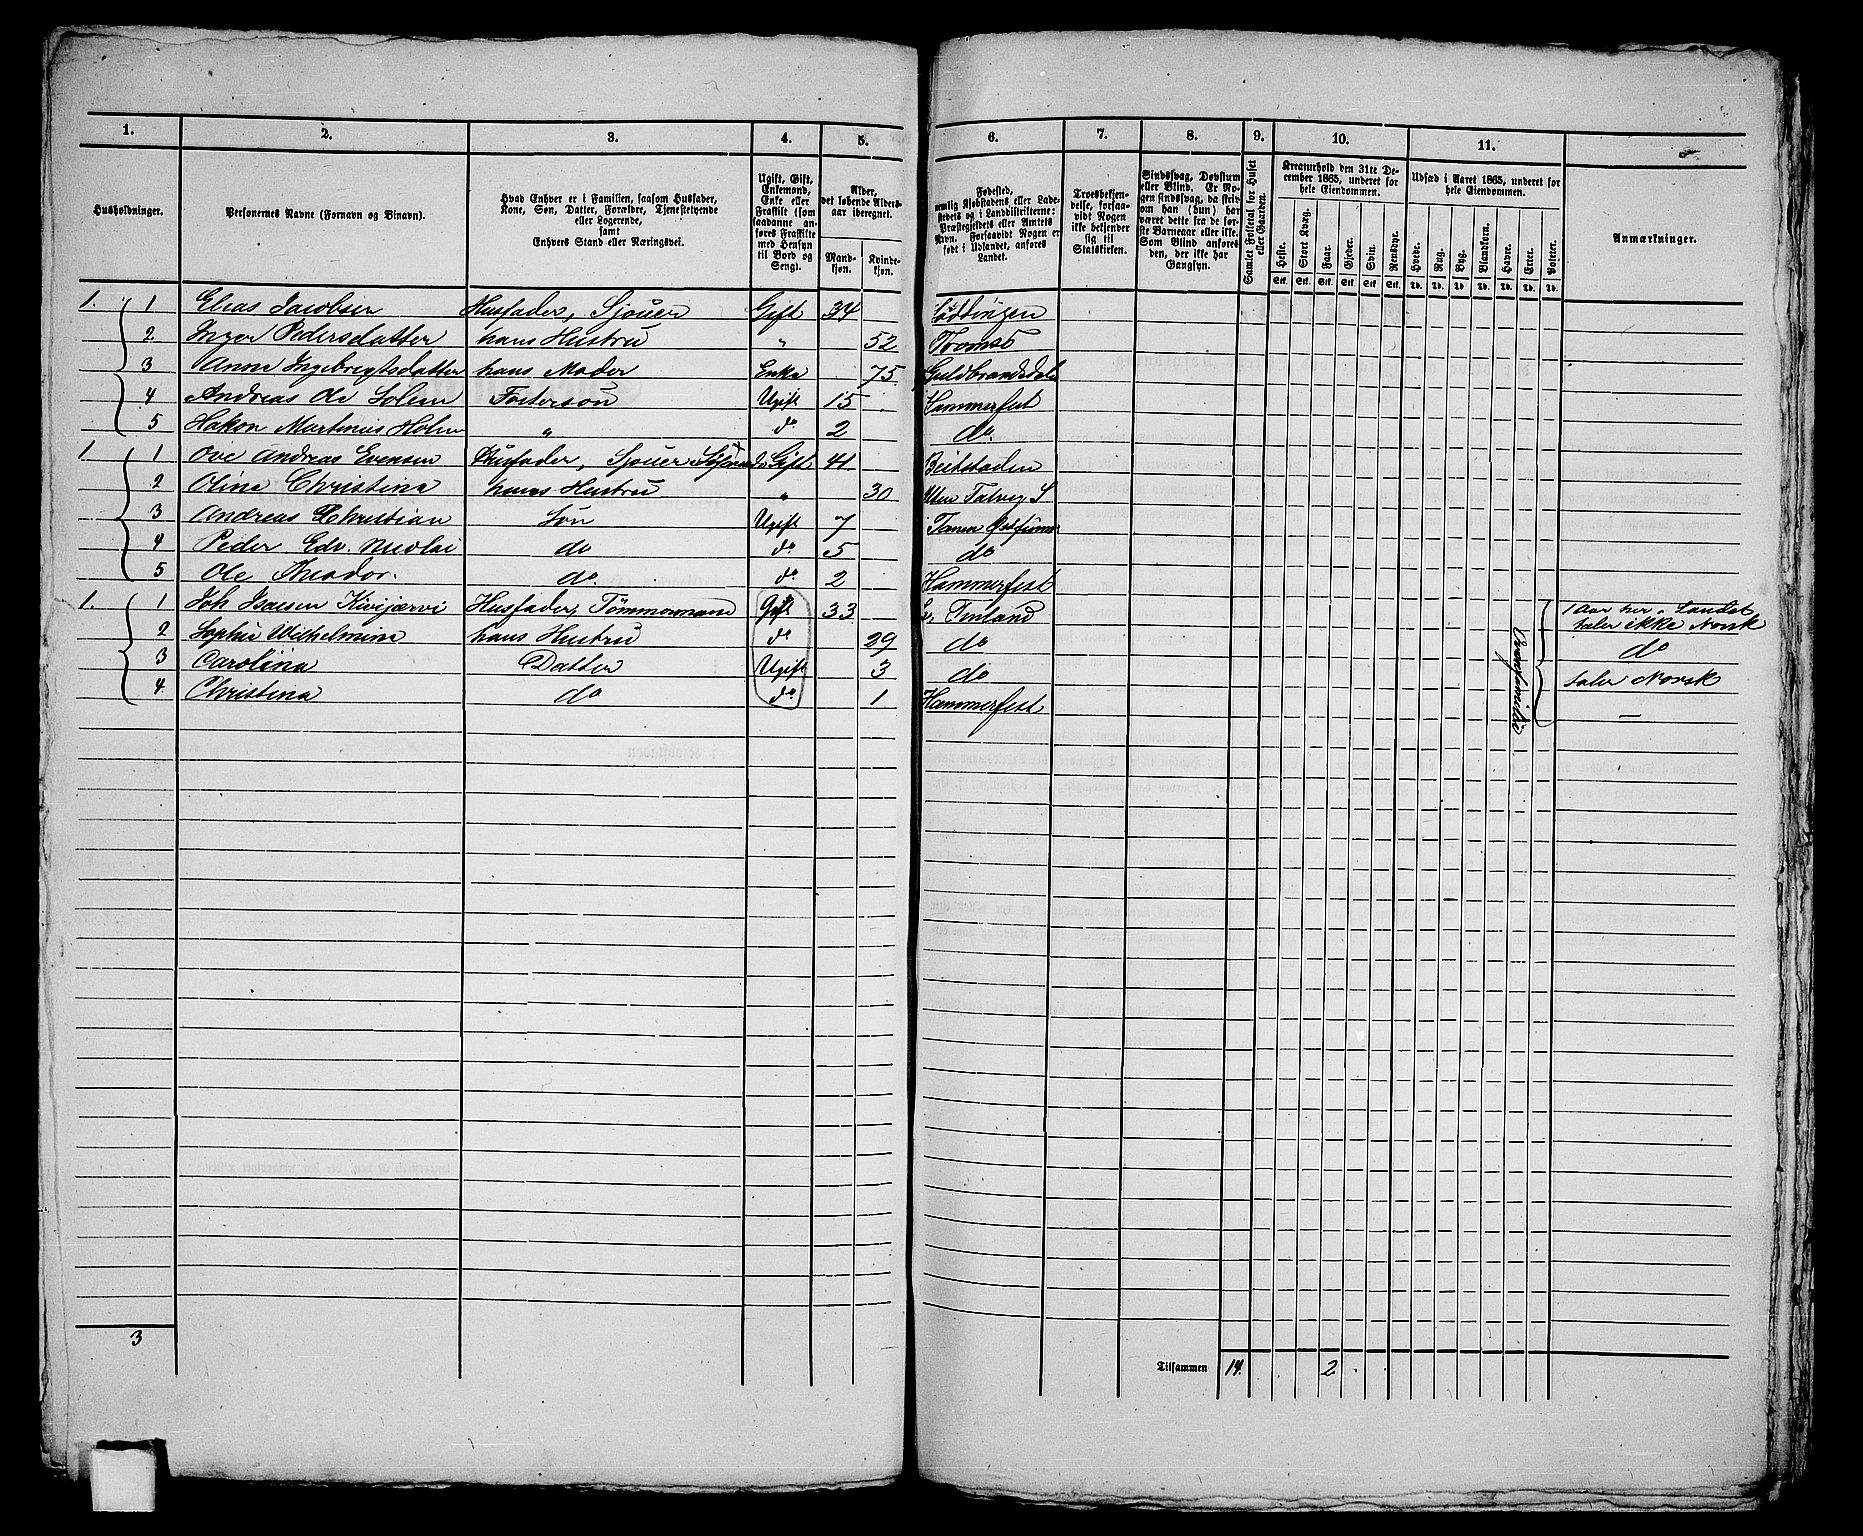 1. 2. 3. 4. 5. 6. 7. 8. 9. 10. 11.
Husholdninger.
Personernes Navne (Fornavn og Binavn).
Hvad Enhver er i Familien, saasom Husfader,
Kone, Søn, Datter, Forældre, Tjenestetyende
eller Logerende,
samt
Enhvers Stand eller Næringsvei.
Ugift, Gift,
Enkemand,
Enke eller
Fraskilt (som
saadanne an-
føres Fraskilte
med Hensyn
til Bord og
Seng).
Alder,
det løbende Alders-
aar iberegnet.
Mand-
kjøn.
Kvinde-
kjøn.
Fødested,
nemlig Kjøbstadens eller Lade-
stedets og i Landdistrikterne:
Præstegjeldets eller Amtets
Navn. Forsaavidt Nogen er
født i Udlandet, anføres
Landet.
Troesbekjen-
delse, forsaa-
vidt Nogen
ikke bekjender
sig til
Statskirken.
Sindssvag, Døvstum
eller Blind. Er No-
gen sindssvag, da skriv
om han (hun) har
været dette fra de før-
ste Barneaar eller ikke.
Som Blind anføres
den, der ikke har
Gangsyn.
Samlet Folketal for Huset
eller Gaarden.
Kreaturhold den 31te De-
cember 1865, underet for
hele Eiendommen.
Heste. Stort Kvæg. Faar. Gjeder. Svin. Rensdyr.
Stk. Stk. Stk. Stk. Stk. Stk.
Udsæd i Aaret 1865, underet for
hele Eiendommen.
Hvede. Rug. Byg. Blandkorn. Havre. Erter. Poteter.
Td. Td. Td. Td. Td. Td. Td.
Anmærkninger.
1. 1 Elias Jacobsen Husfader, Sjouer Gift 34 Løddingen
2 Inger Pedersdatter hans Hustru " 52 Tromsö
3 Anne Ingebregtsdatter hans Moder Enke 75 Guldbrandsdalen
4 Andreas Ole Solem Fostersøn Ugift 15 Hammerfest
5 Hakon Martinus Holm " do 2 do.
1. 1 Ove Andreas Evensen Husfader, Sjouer Gift 41 Beitstaden
2 Olina Christina hans Hustru " 30 Talvig
3 Andreas Christian Søn Ugift 7 Tanen
4 Peder Edv. Nicolai do do 5 do
5 Ole Theodor. do. do. 2 Hammerfest
1. 1 Joh Isacsen Kivijærvi Husfader, Tømmermand Gift 33 Finland 1 Aar her i Landet
taler ikke Norsk
2 Sophie Wilhelmina hans Hustru do 29 do do
3 Carolina Datter Ugift 3 do taler Norsk
4 Christina do do 1 Hammerfest —
3
Tilsammen 14. 2